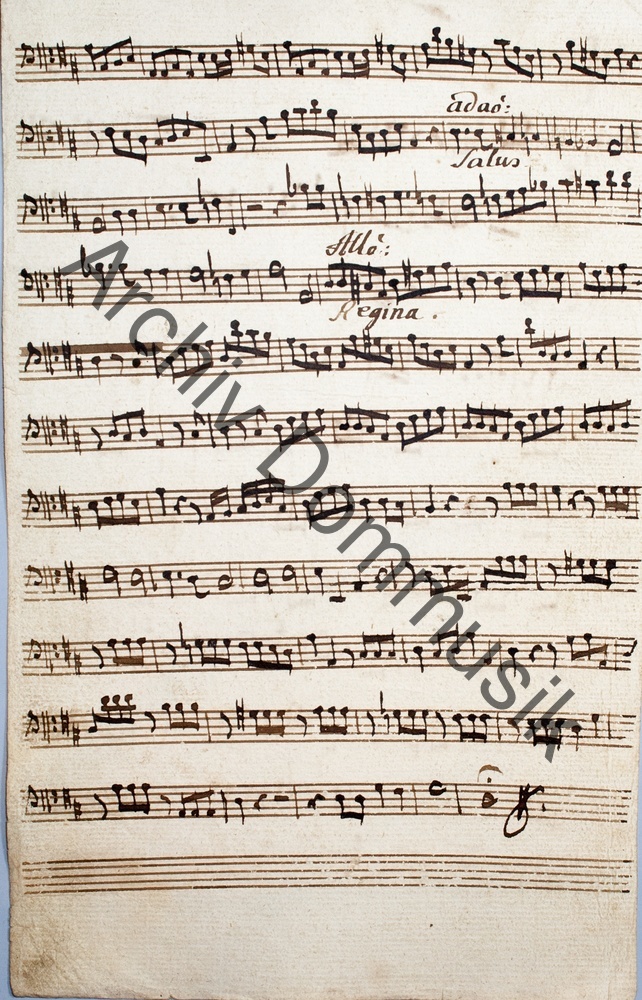 adaō:
Salus
Allō:
Regina.
Archiv Dommusik